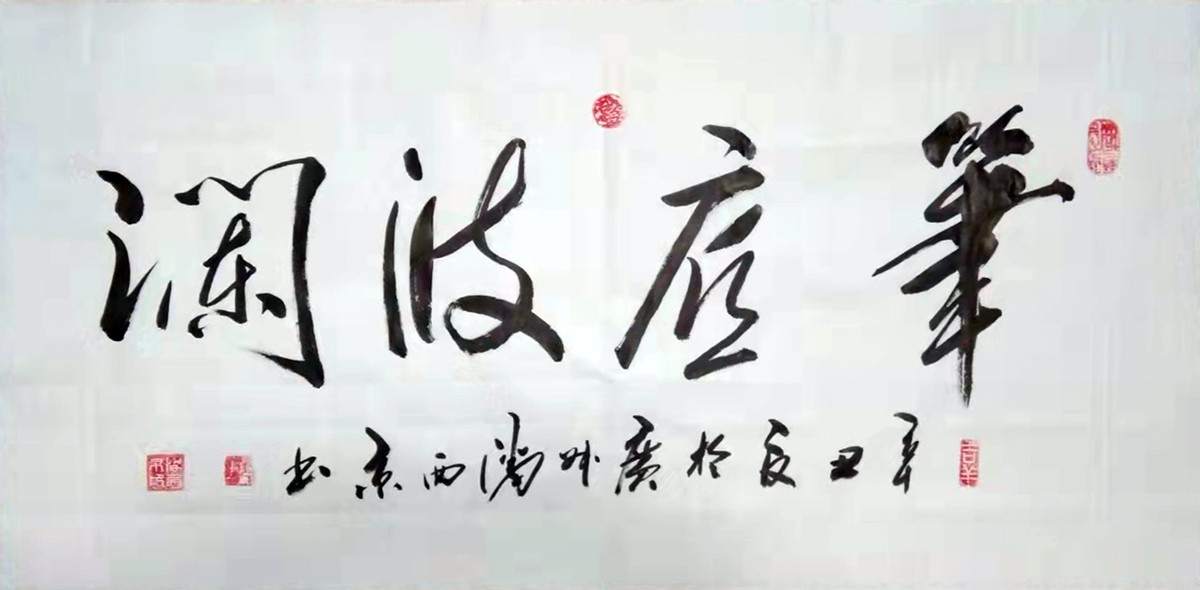 筆底波瀾
辛丑夏於廣州西京书